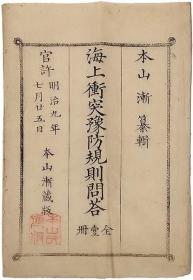 本山漸纂輯
海上衝突豫防規則問答
全壹冊
官許
明治九年
七月廿五日
本山漸藏版